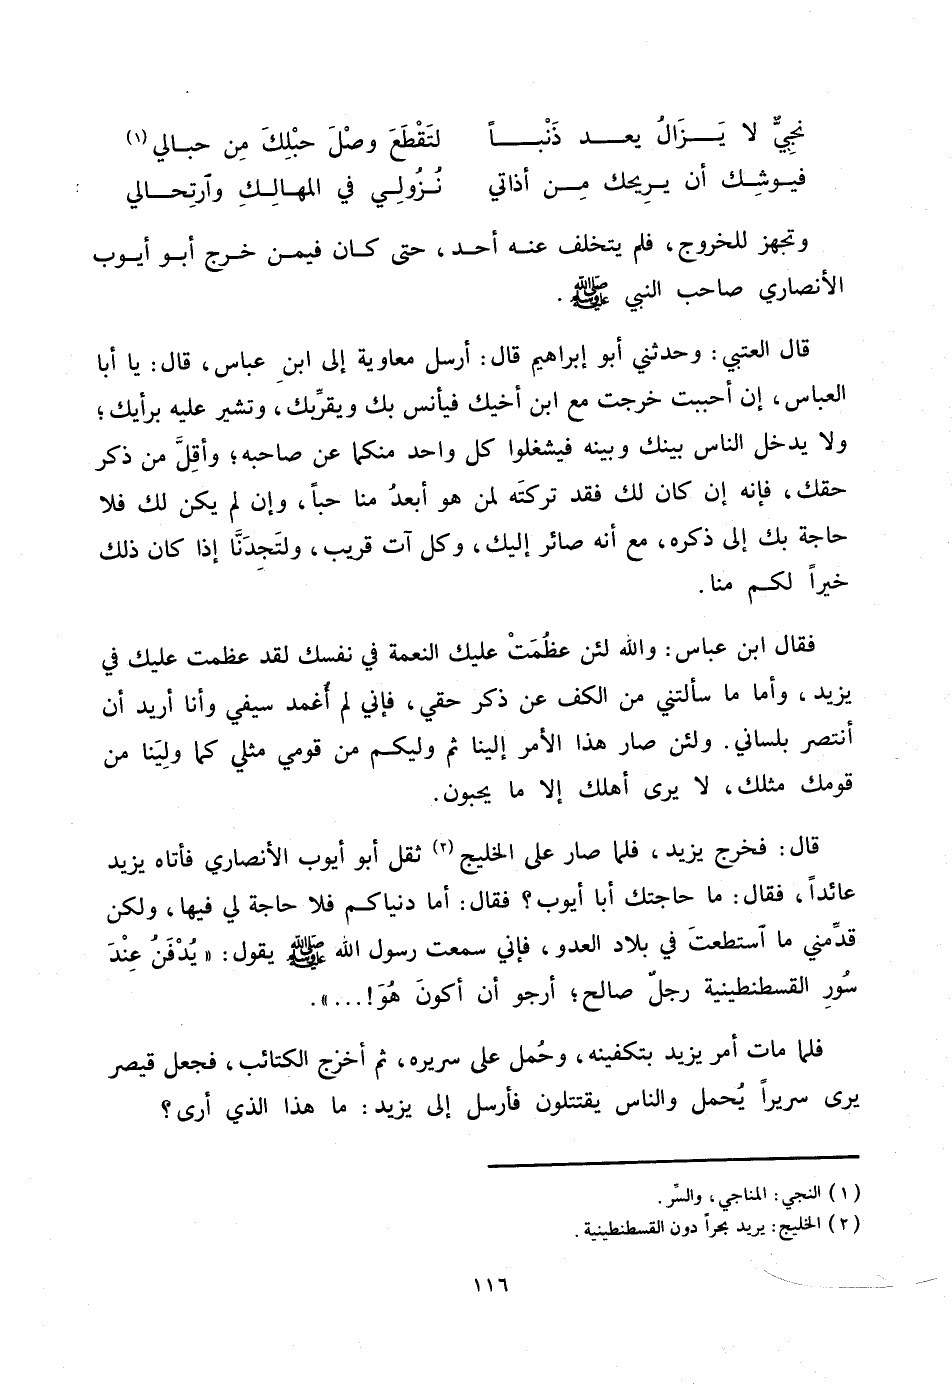 نجِيٌّ لا يَـــزَالُ يعـــد ذَنْبـــاً لتَقْطَعَ وصْلَ حبْلِكَ مِن حبـالي (١)
فيـوشِـك أن يـريحك مِـن أذاتي نُـزُولِي في المهـالِـك وآرتِحـالي
وتجهز للخروج، فلم يتخلف عنه أحد، حتى كان فيمن خرج أبو أيوب
الأنصاري صاحب النبي ﷺ.
قال العتبي: وحدثني أبو إبراهيم قال: أرسل معاوية إلى ابنِ عباس، قال: يا أبا
العباس، إن أحببت خرجت مع ابن أخيك فيأنس بك ويقرِّبك، وتشير عليه برأيك؛
ولا يدخل الناس بينك وبينه فيشغلوا كل واحد منكما عن صاحبه؛ وأقِلَّ من ذكر
حقك، فإنه إن كان لك فقد تركتَه لمن هو أبعدُ منا حباً، وإن لم يكن لك فلا
حاجة بك إلى ذكره، مع أنه صائر إليك، وكل آت قريب، ولتَجِدَنَّا إذا كان ذلك
خيراً لكم منا.
فقال ابن عباس: والله لئن عظُمَتْ عليك النعمة في نفسك لقد عظمت عليك في
يزيد، وأما ما سألتني من الكف عن ذكر حقي، فإني لم أُغمد سيفي وأنا أريد أن
أنتصر بلساني. ولئن صار هذا الأمر إلينا ثم وليكم من قومي مثلي كما ولِيَنا من
قومك مثلك، لا يرى أهلك إلا ما يحبون.
قال: فخرج يزيد، فلما صار على الخليج (٢) ثقل أبو أيوب الأنصاري فأتاه يزيد
عائداً، فقال: ما حاجتك أبا أيوب؟ فقال: أما دنياكم فلا حاجة لي فيها، ولكن
قدِّمني ما آستطعتَ في بلاد العدو، فإني سمعت رسول الله ﷺ يقول: « يُدْفَنُ عِنْدَ
سُورِ القسطنطينية رجلٌ صالح؛ أرجو أن أكونَ هُوَ!...».
فلما مات أمر يزيد بتكفينه، وحُمل على سريره، ثم أخرج الكتائب، فجعل قيصر
يرى سريراً يُحمل والناس يقتتلون فأرسل إلى يزيد: ما هذا الذي أرى؟
(١) النجي: المناجي، والسِّر.
(٢) الخليج: يريد بحراً دون القسطنطينية.
١١٦